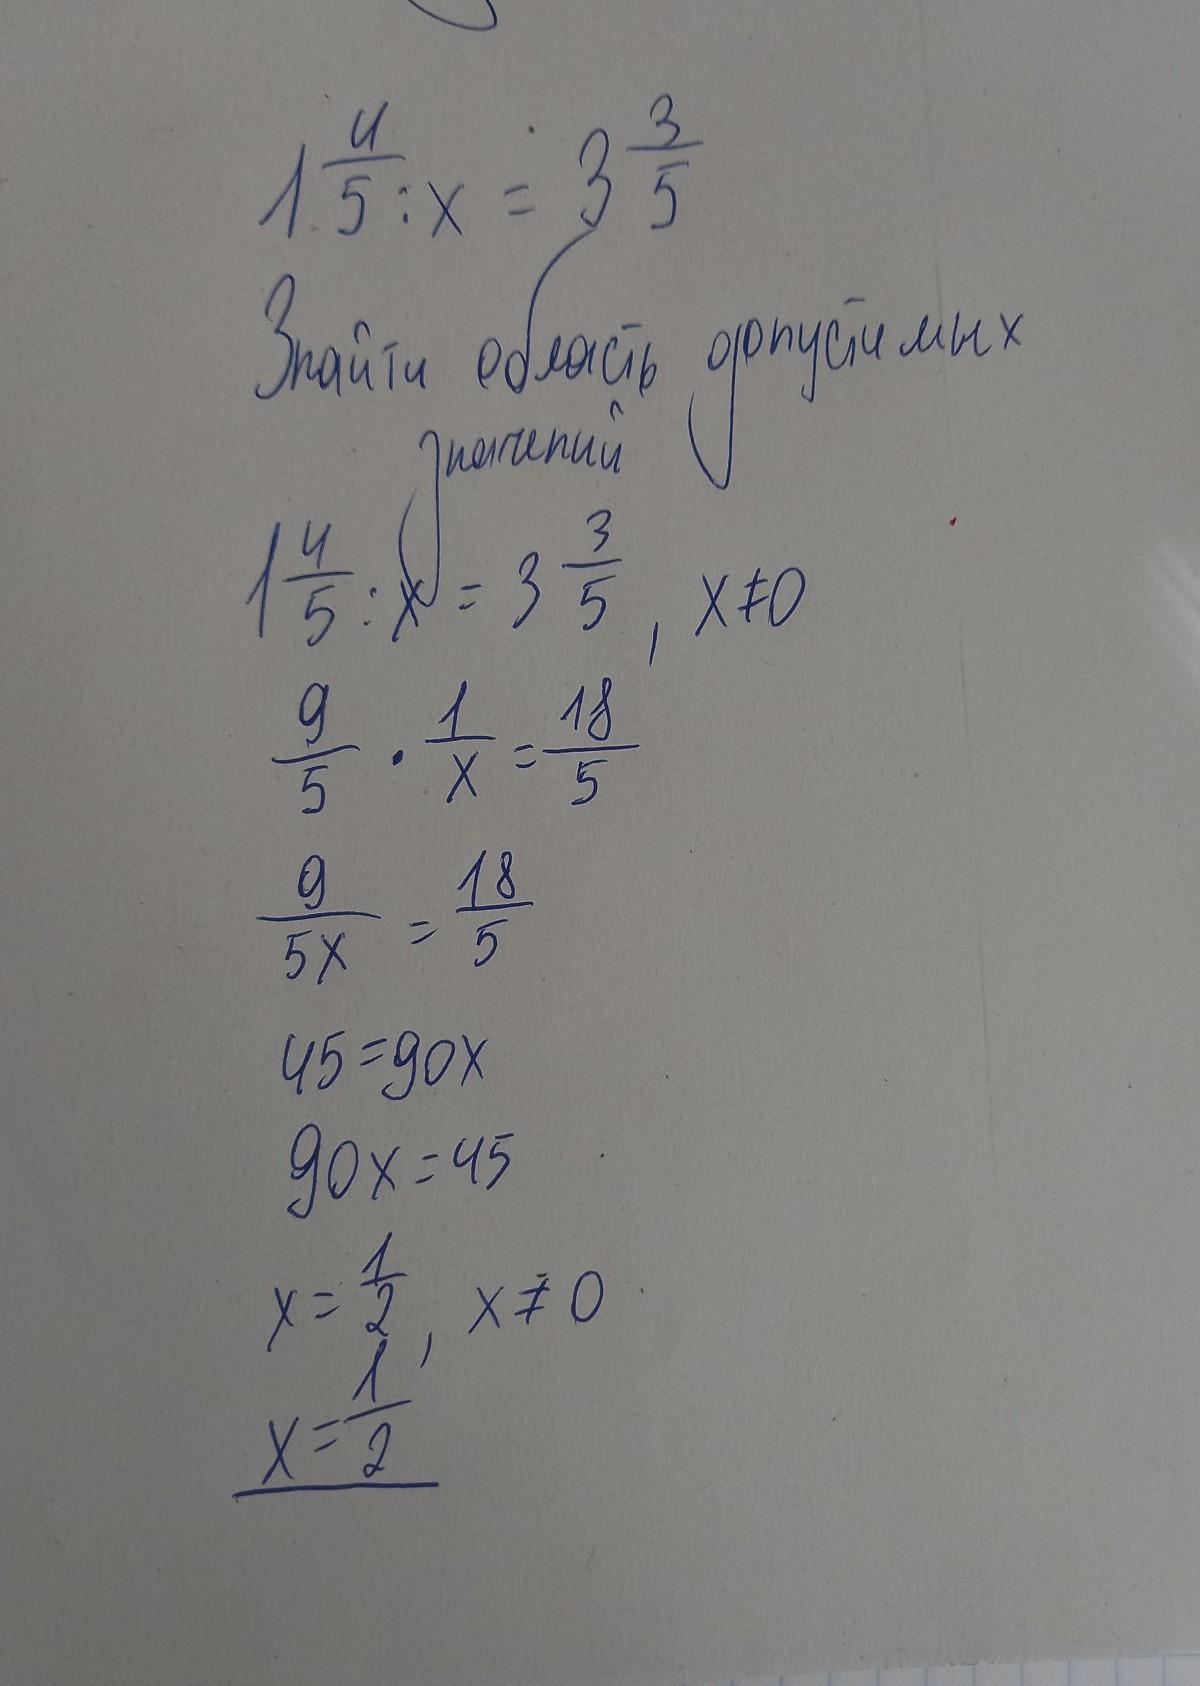 1 4/5 : x = 3 3/5
Знайти область допустимых
значений
1 4/5 : x = 3 3/5 , x ≠ 0
9/5 · 1/x = 18/5
9/5x = 18/5
45 = 90x
90x = 45
x = 1/2 , x ≠ 0
x = 1/2